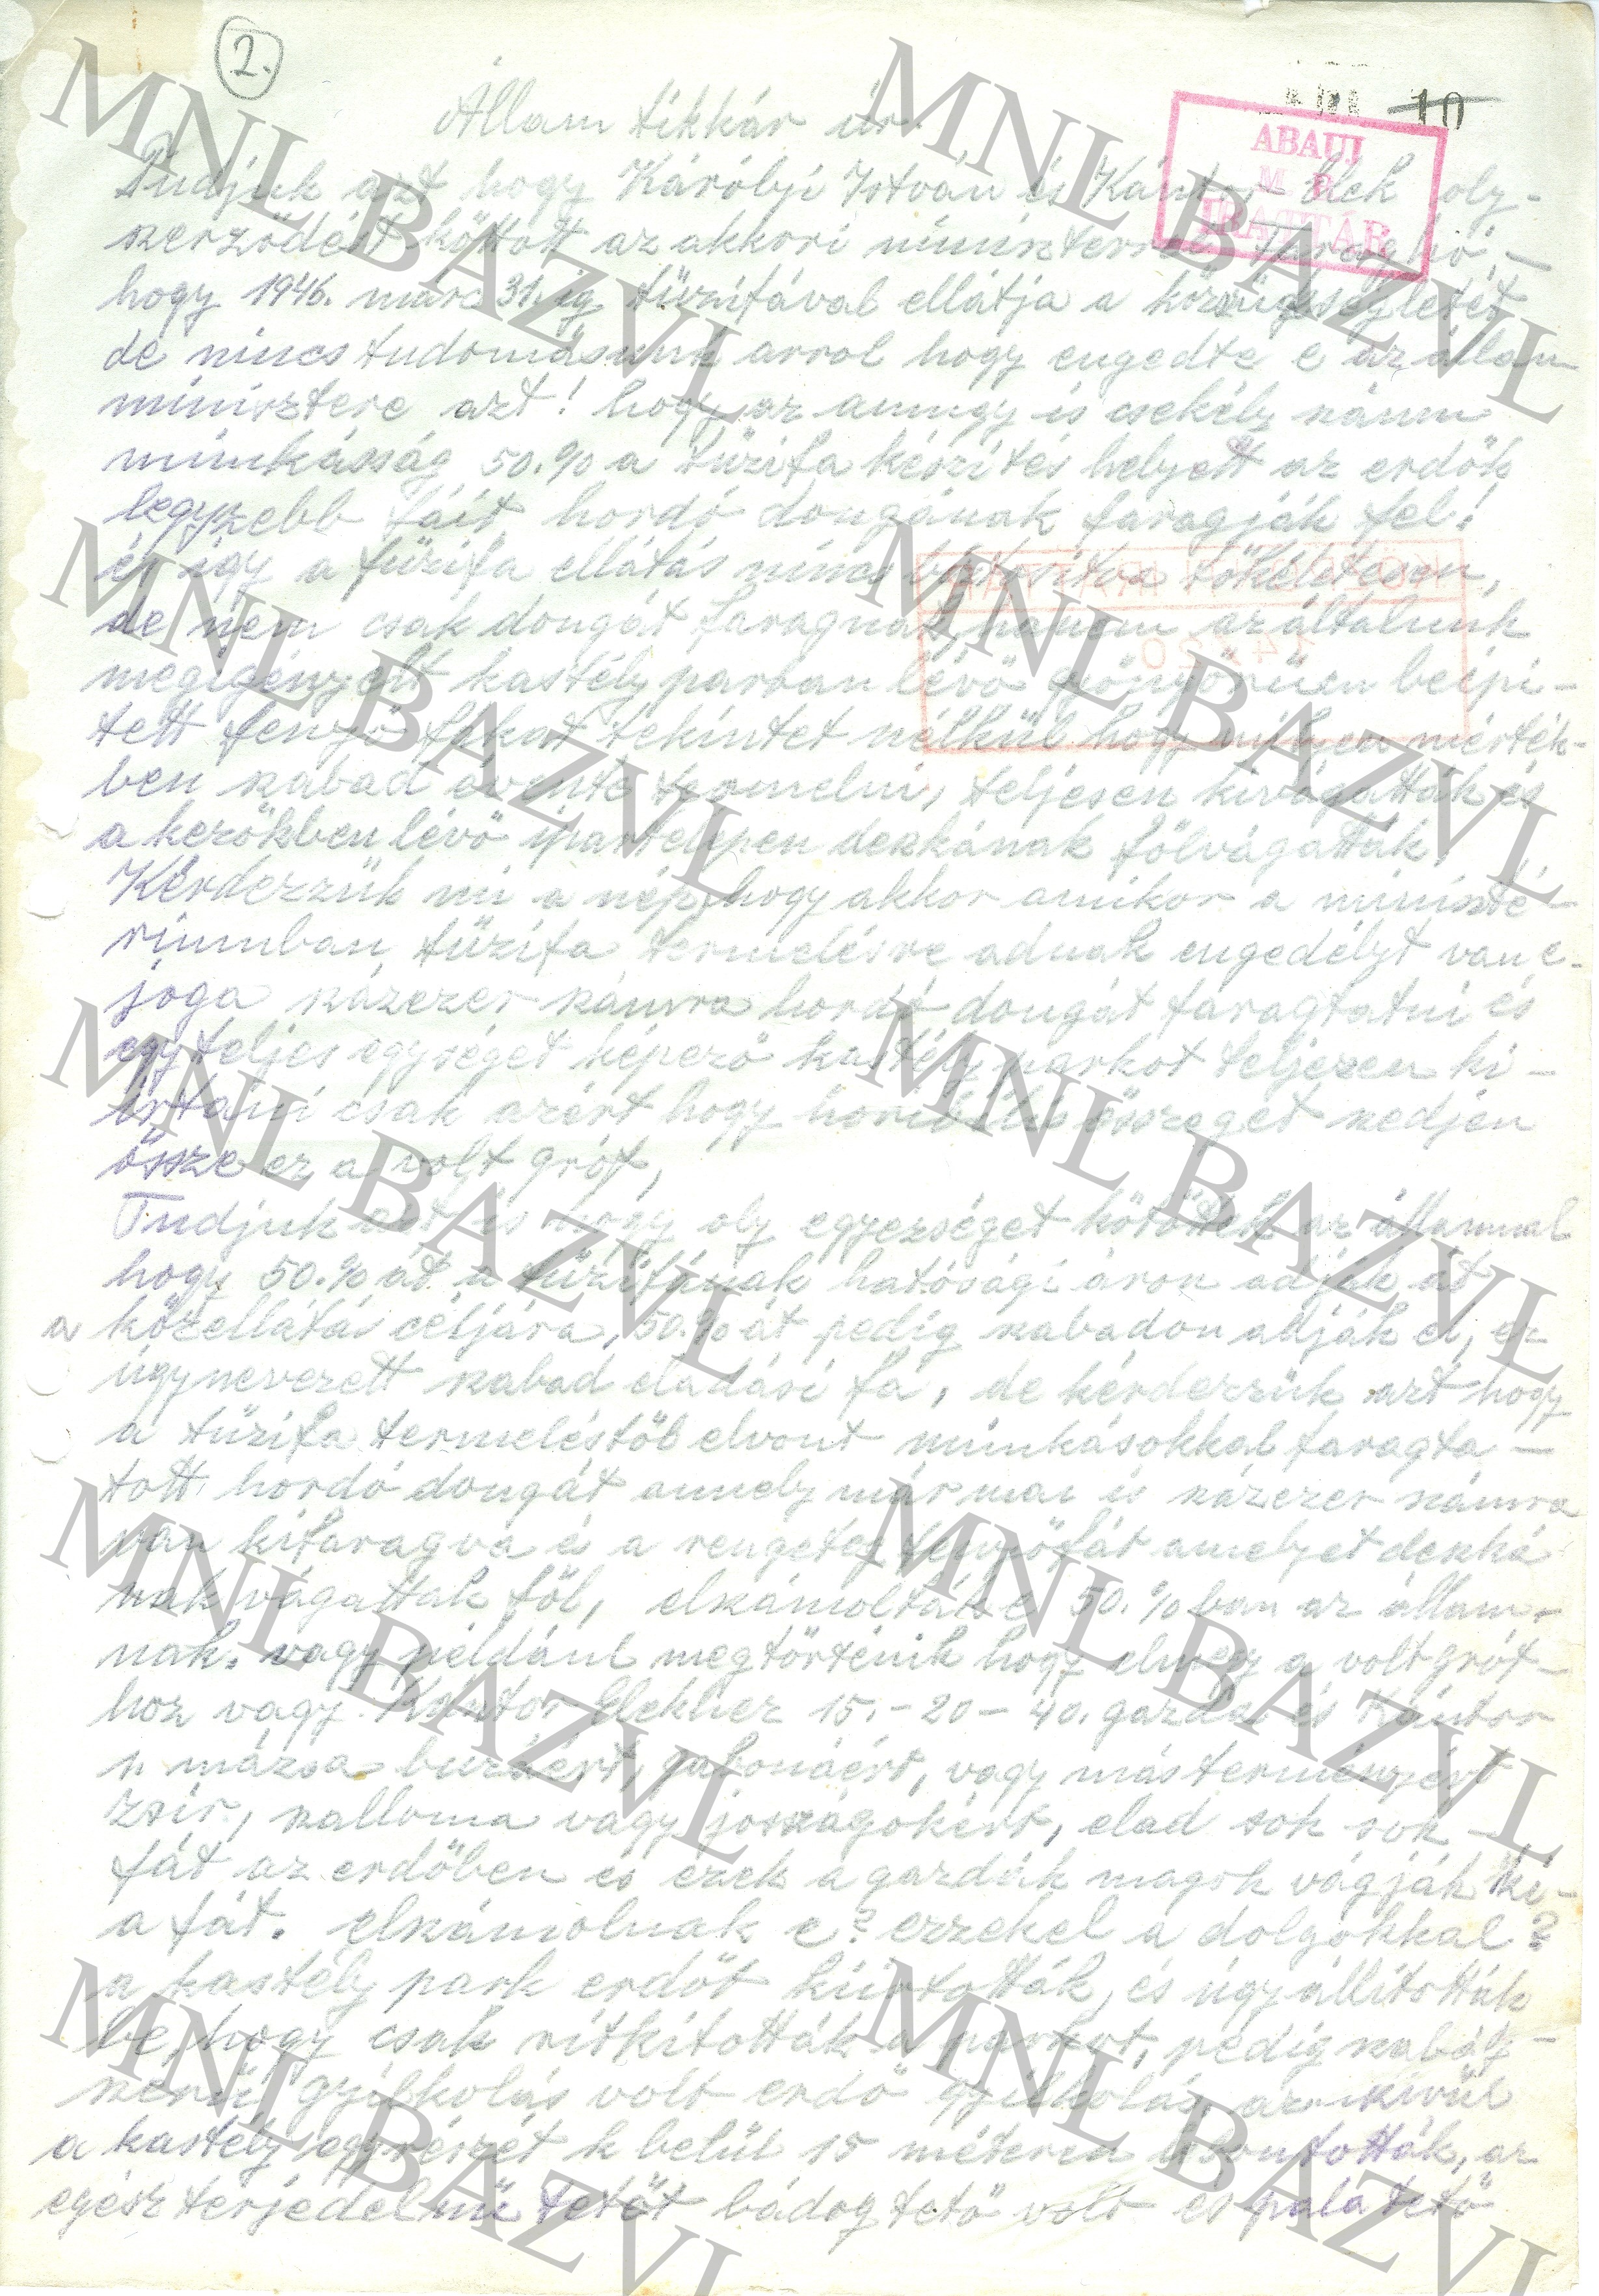 2.
10
ABAUJ
M. P.
IRATTÁR
Állam titkár úr
Tudjuk azt hogy Károlyi István és Kántor Elek oly-
szerződést kötött az akkori miniszterrel Faraghó, —
hogy 1946. marc 31. ig tüzifával ellátja a közszügségletét
de nincs tudomásunk arrol hogy engedte e az állam
minisztere azt! hogy az amugy is csekély számu
munkásság 50.% a tüzifa készités helyett az erdők
legszebb fáit hordó dongának faragják fel!
és igy a tüzifa ellátás nincs biztositva tökéletesen,
de nem csak dongát faragnak, hanem az általunk
megigényelt kastély parkan lévő gyönyörüen beépi-
tett fenyő fákat tekintet nélkül hogy milyen mérték-
ben szabad évente termelni, teljesen kivágatták és
a kezökben lévő ipartelepen deszkának fölvágatták.
Kérdezzük mi a nép, hogy akkor amikor a miniszté-
riumban tüzifa termelésre adnak engedélyt van e-
joga százezer számra hordó dongát faragtatni és
egy teljes egységet képező kastély parkot teljesen ki-
irtani csak azért hogy horribilis összeget szedjen
össze ez a volt gróf,
Tudjuk azt is hogy oly egyezséget kötöttek az állammal
hogy 50.% át a tüzifának hatósági áron adják át
a közellátás céljára, 50.% át pedig szabadon adják el, ez
úgynevezett szabad eladási fa, de kérdezzük azt hogy
a tüzifa termeléstöl elvont munkásokkal faragta-
tott hordó dongát amely már mai is százezer számra
van kifaragva és a rengeteg fenyőfát amelyet deszká
nak vágattak föl, elszámolták e 50.% ban az állam-
nak. vagy például megtörténik hogy elmegy a volt gróf-
hoz vagy Kántor Elekhez 15.-20-40. gazda és Kántor
n mázsa buzáért, gabonáért, vagy más terményért
zsir, szallonna vagy joszágokért, elad sok sok —
fát az erdőben és ezek a gazdák magok vágják ki-
a fát. elszámolnak e? ezzekel a dolgokkal?
a kastély park erdőt kiirtották, és úgy állitották
be, hogy csak ritkitották a parkot, pedig szabály-
szerü gyilkolás volt erdő gyilkolás, azonkivül
a kastély egyrészét k belül 15 méteren lebontották, az
egész terjedelmü tetőt bádog tető volt es pala tető